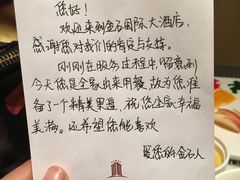 您好！
欢迎来到金石国际大酒店，
感谢您对我们的肯定与支持。
刚刚在服务过程中，留意到
今天您是全家出来用餐，故为您准
备了一个精美果盘，祝您全家幸福
美满。还希望您能喜欢
爱您的金石人